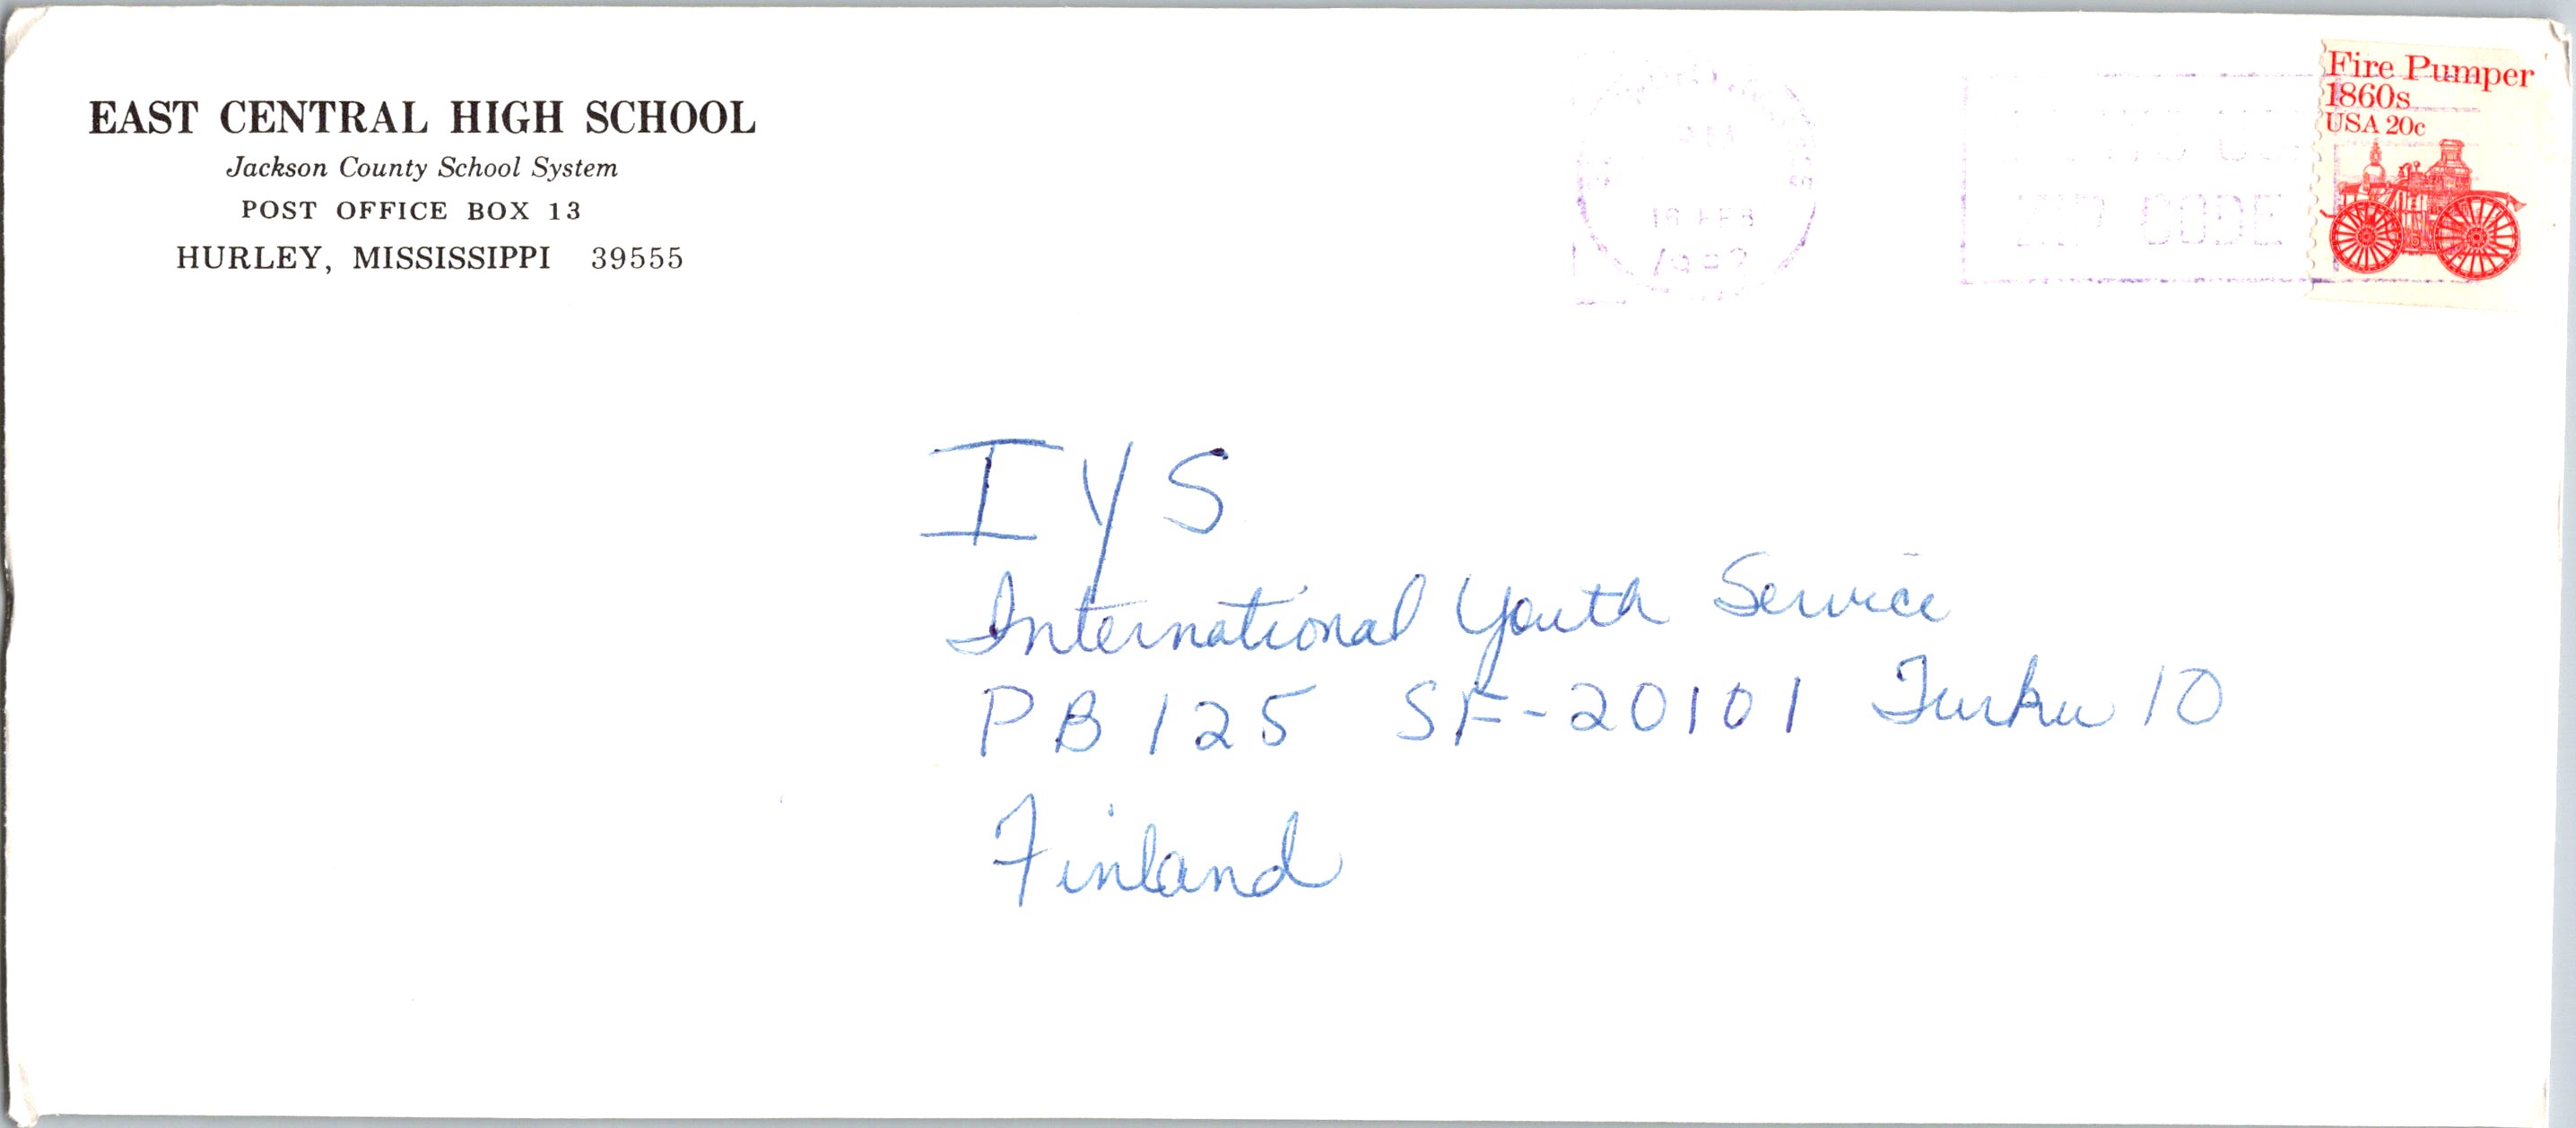 EAST CENTRAL HIGH SCHOOL
Jackson County School System
POST OFFICE BOX 13
HURLEY, MISSISSIPPI 39555
AM
16 FEB
ZIP CODE
Fire Pumper
1860s
USA 20c
IYS
International Youth Service
PB 125 SF-20101 Turku 10
Finland